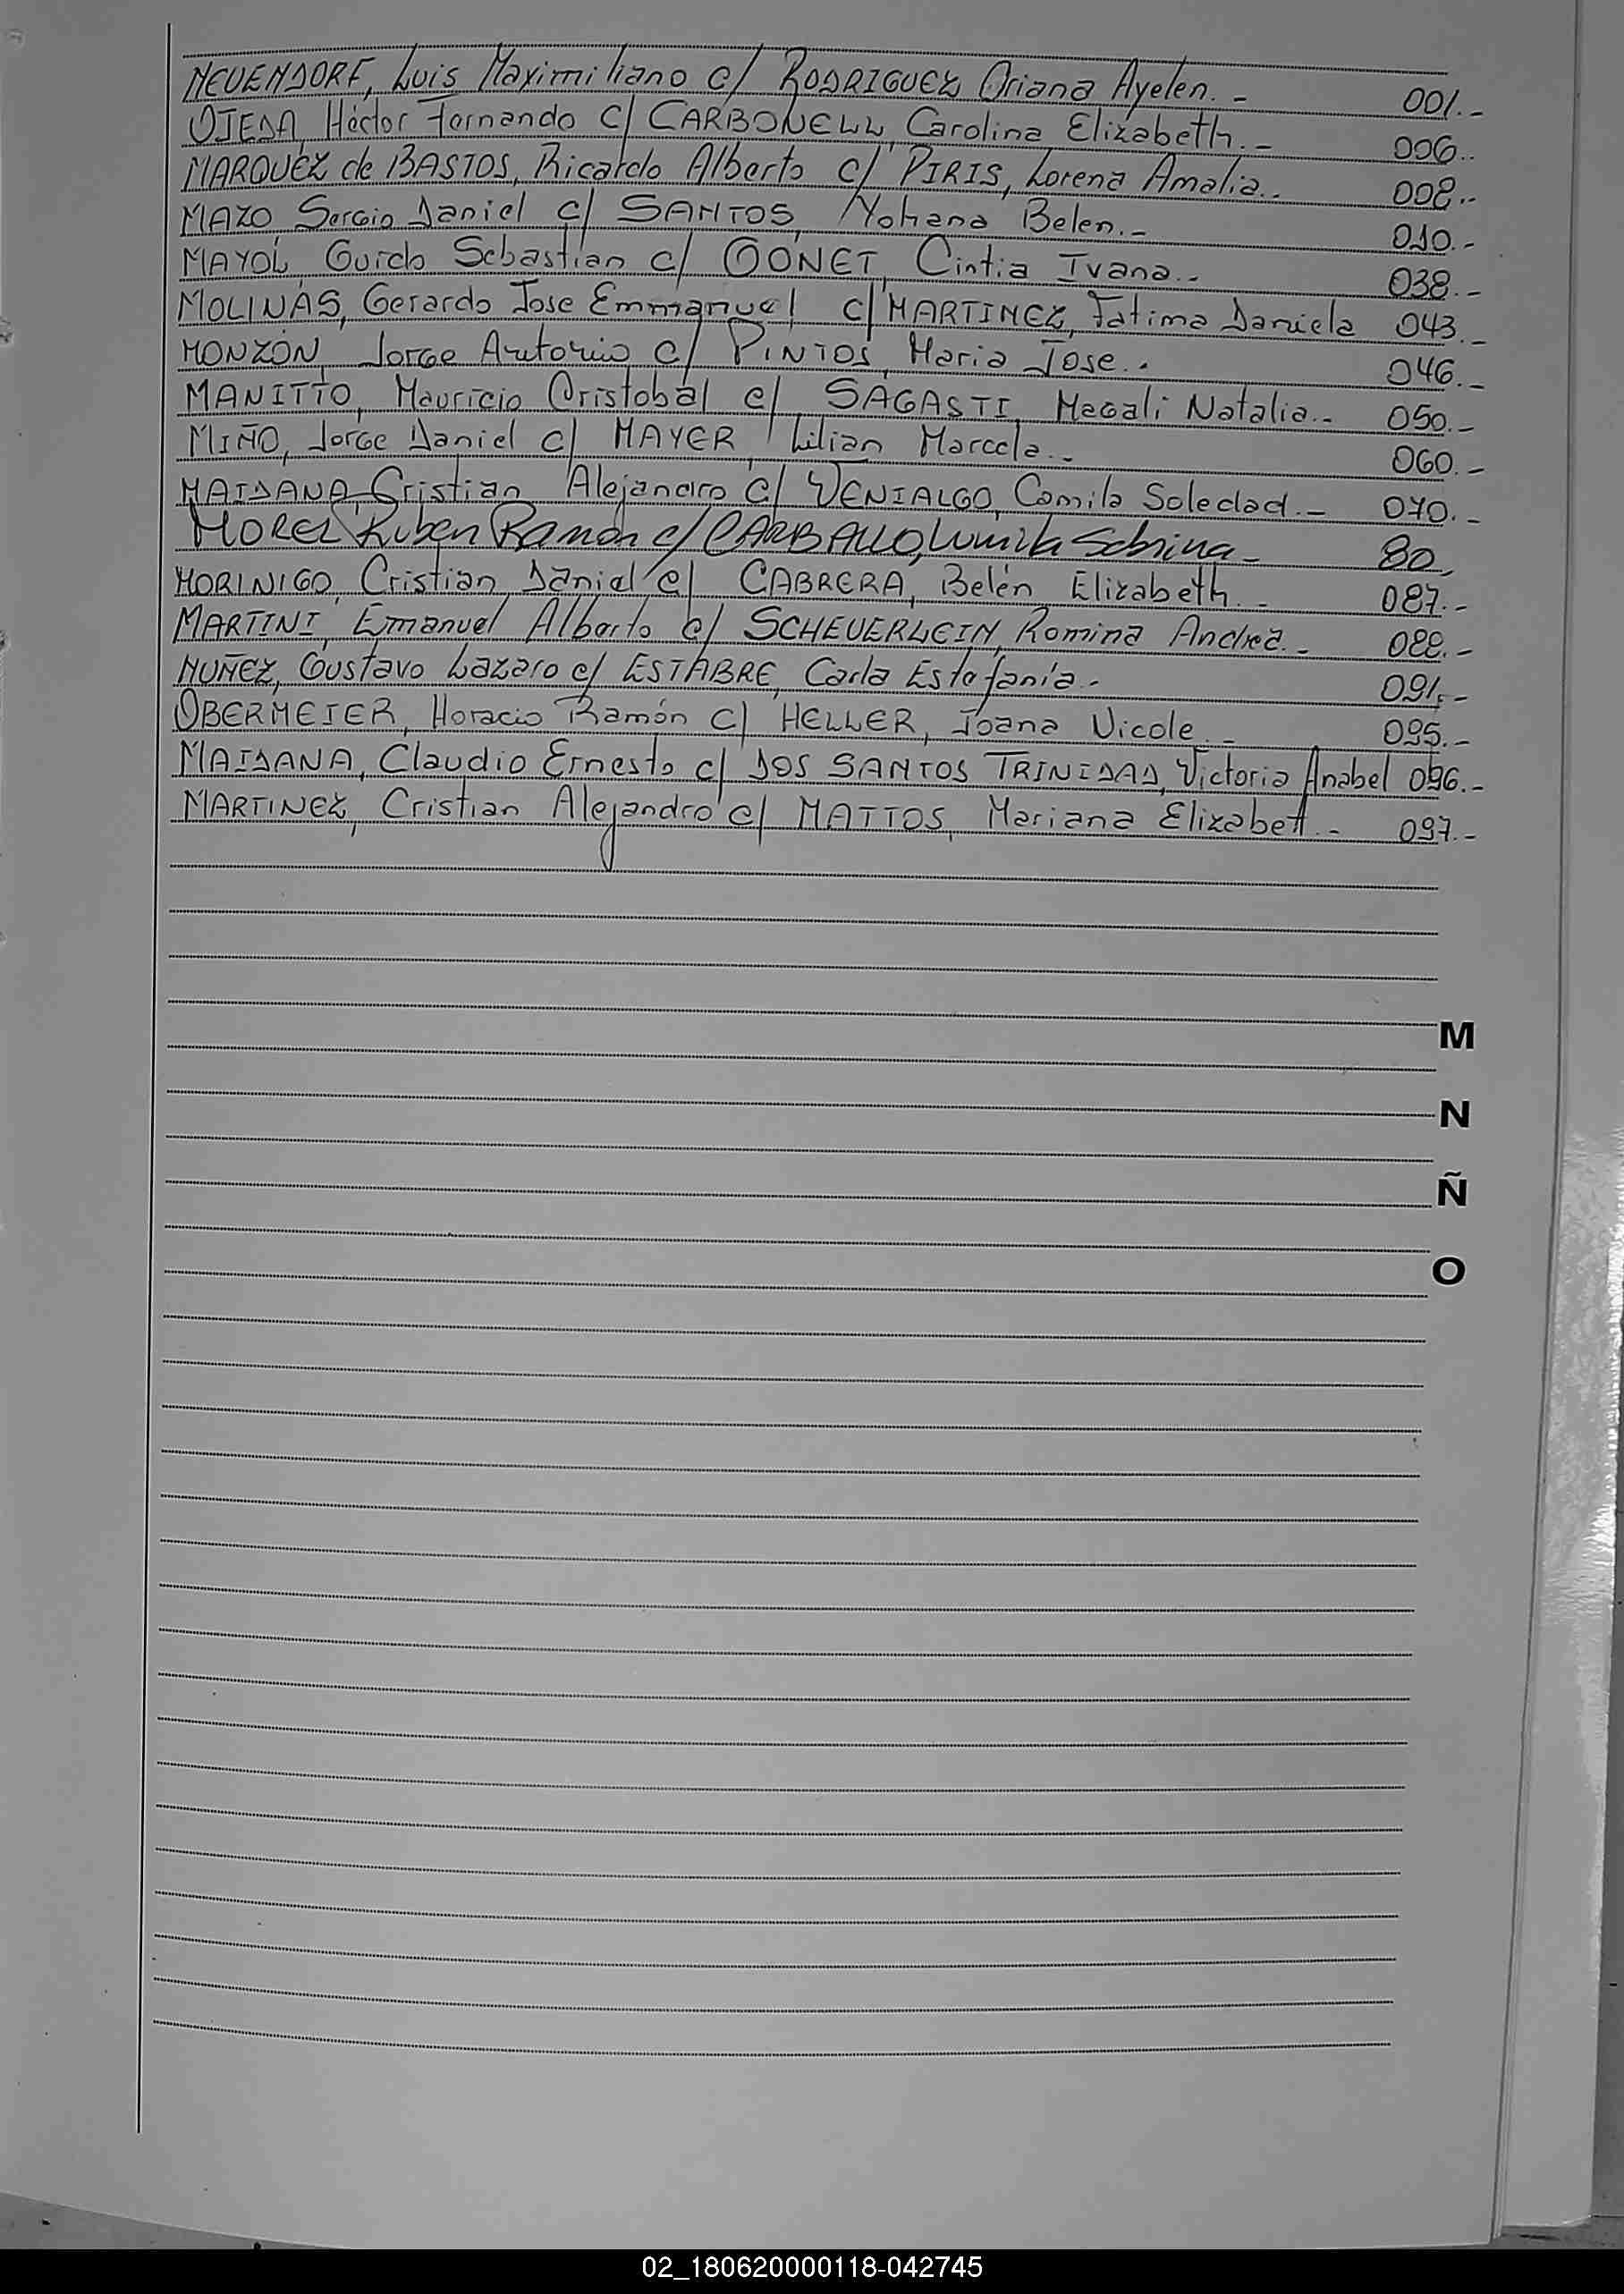 NEUENDORF, Luis Maximiliano c/ RODRIGUEZ, Oriana Ayelen.- 001.-
OJEDA, Héctor Fernando c/ CARBONELL, Carolina Elizabeth.- 006.-
MARQUEZ de BASTOS, Ricardo Alberto c/ PIRIS, Lorena Amalia.- 008.-
MAZO Sergio Daniel c/ SANTOS, Yohana Belen.- 010.-
MAYOL, Guido Sebastian c/ GONET, Cintia Ivana.- 038.-
MOLINAS, Gerardo Jose Emmanuel c/ MARTINEZ, Fatima Daniela 043.-
MONZÓN, Jorge Antonio c/ PINTOS, Maria Jose.- 046.-
MANITTO, Mauricio Cristobal c/ SAGASTI, Magali Natalia.- 050.-
MIÑO, Jorge Daniel c/ MAYER, Lilian Marcela.- 060.-
MAIDANA, Cristian Alejandro c/ VENIALGO, Camila Soledad.- 070.-
MOREL, Ruben Ramon c/ CARBALLO, Lumila Sabrina- 80
MORINIGO, Cristian Daniel c/ CABRERA, Belén Elizabeth.- 087.-
MARTINI, Emanuel Alberto c/ SCHEUERLEIN, Romina Andrea.- 088.-
NUÑEZ, Gustavo Lazaro c/ ESTABRE, Carla Estefanía.- 091.-
OBERMEIER, Horacio Ramón c/ HELLER, Joana Nicole.- 095.-
MAIDANA, Claudio Ernesto c/ DOS SANTOS TRINIDAD, Victoria Anabel 096.-
MARTINEZ, Cristian Alejandro c/ MATTOS, Mariana Elizabett.- 097.-
M
N
Ñ
O
02_180620000118-042745